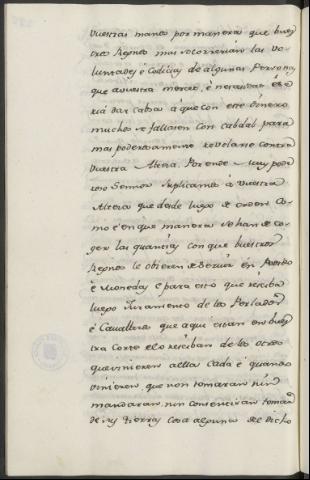 vuestras manos por manera que bues
tros Regnos mas recorrerian las vo
luntades é codicias de algunas Personas
que a vuestra merced, é
ria dar cabsa á que con este dinero
muchos se fallasen con cabdal para
mas poderosamente revelarse contra
vuestra Alteza. Porende muy pode
roso Sennor suplicamos á vuestra
Alteza que desde luego se ordene Co
mo é en que manera se han de co
ger las quantias con que vuestros
Regnos le obieren de servir en Pedido
é Monedas, e para esto que reciba
luego Juramento de los Perlados
é Cavalleros que aqui estan en vues
tra Corte e lo reciban de los otros
que vinieren a ella cada é quando
vinieren, que non tomaran nin
mandaran, nin consentiran tomar
de sus tierras cosa alguna de dicho